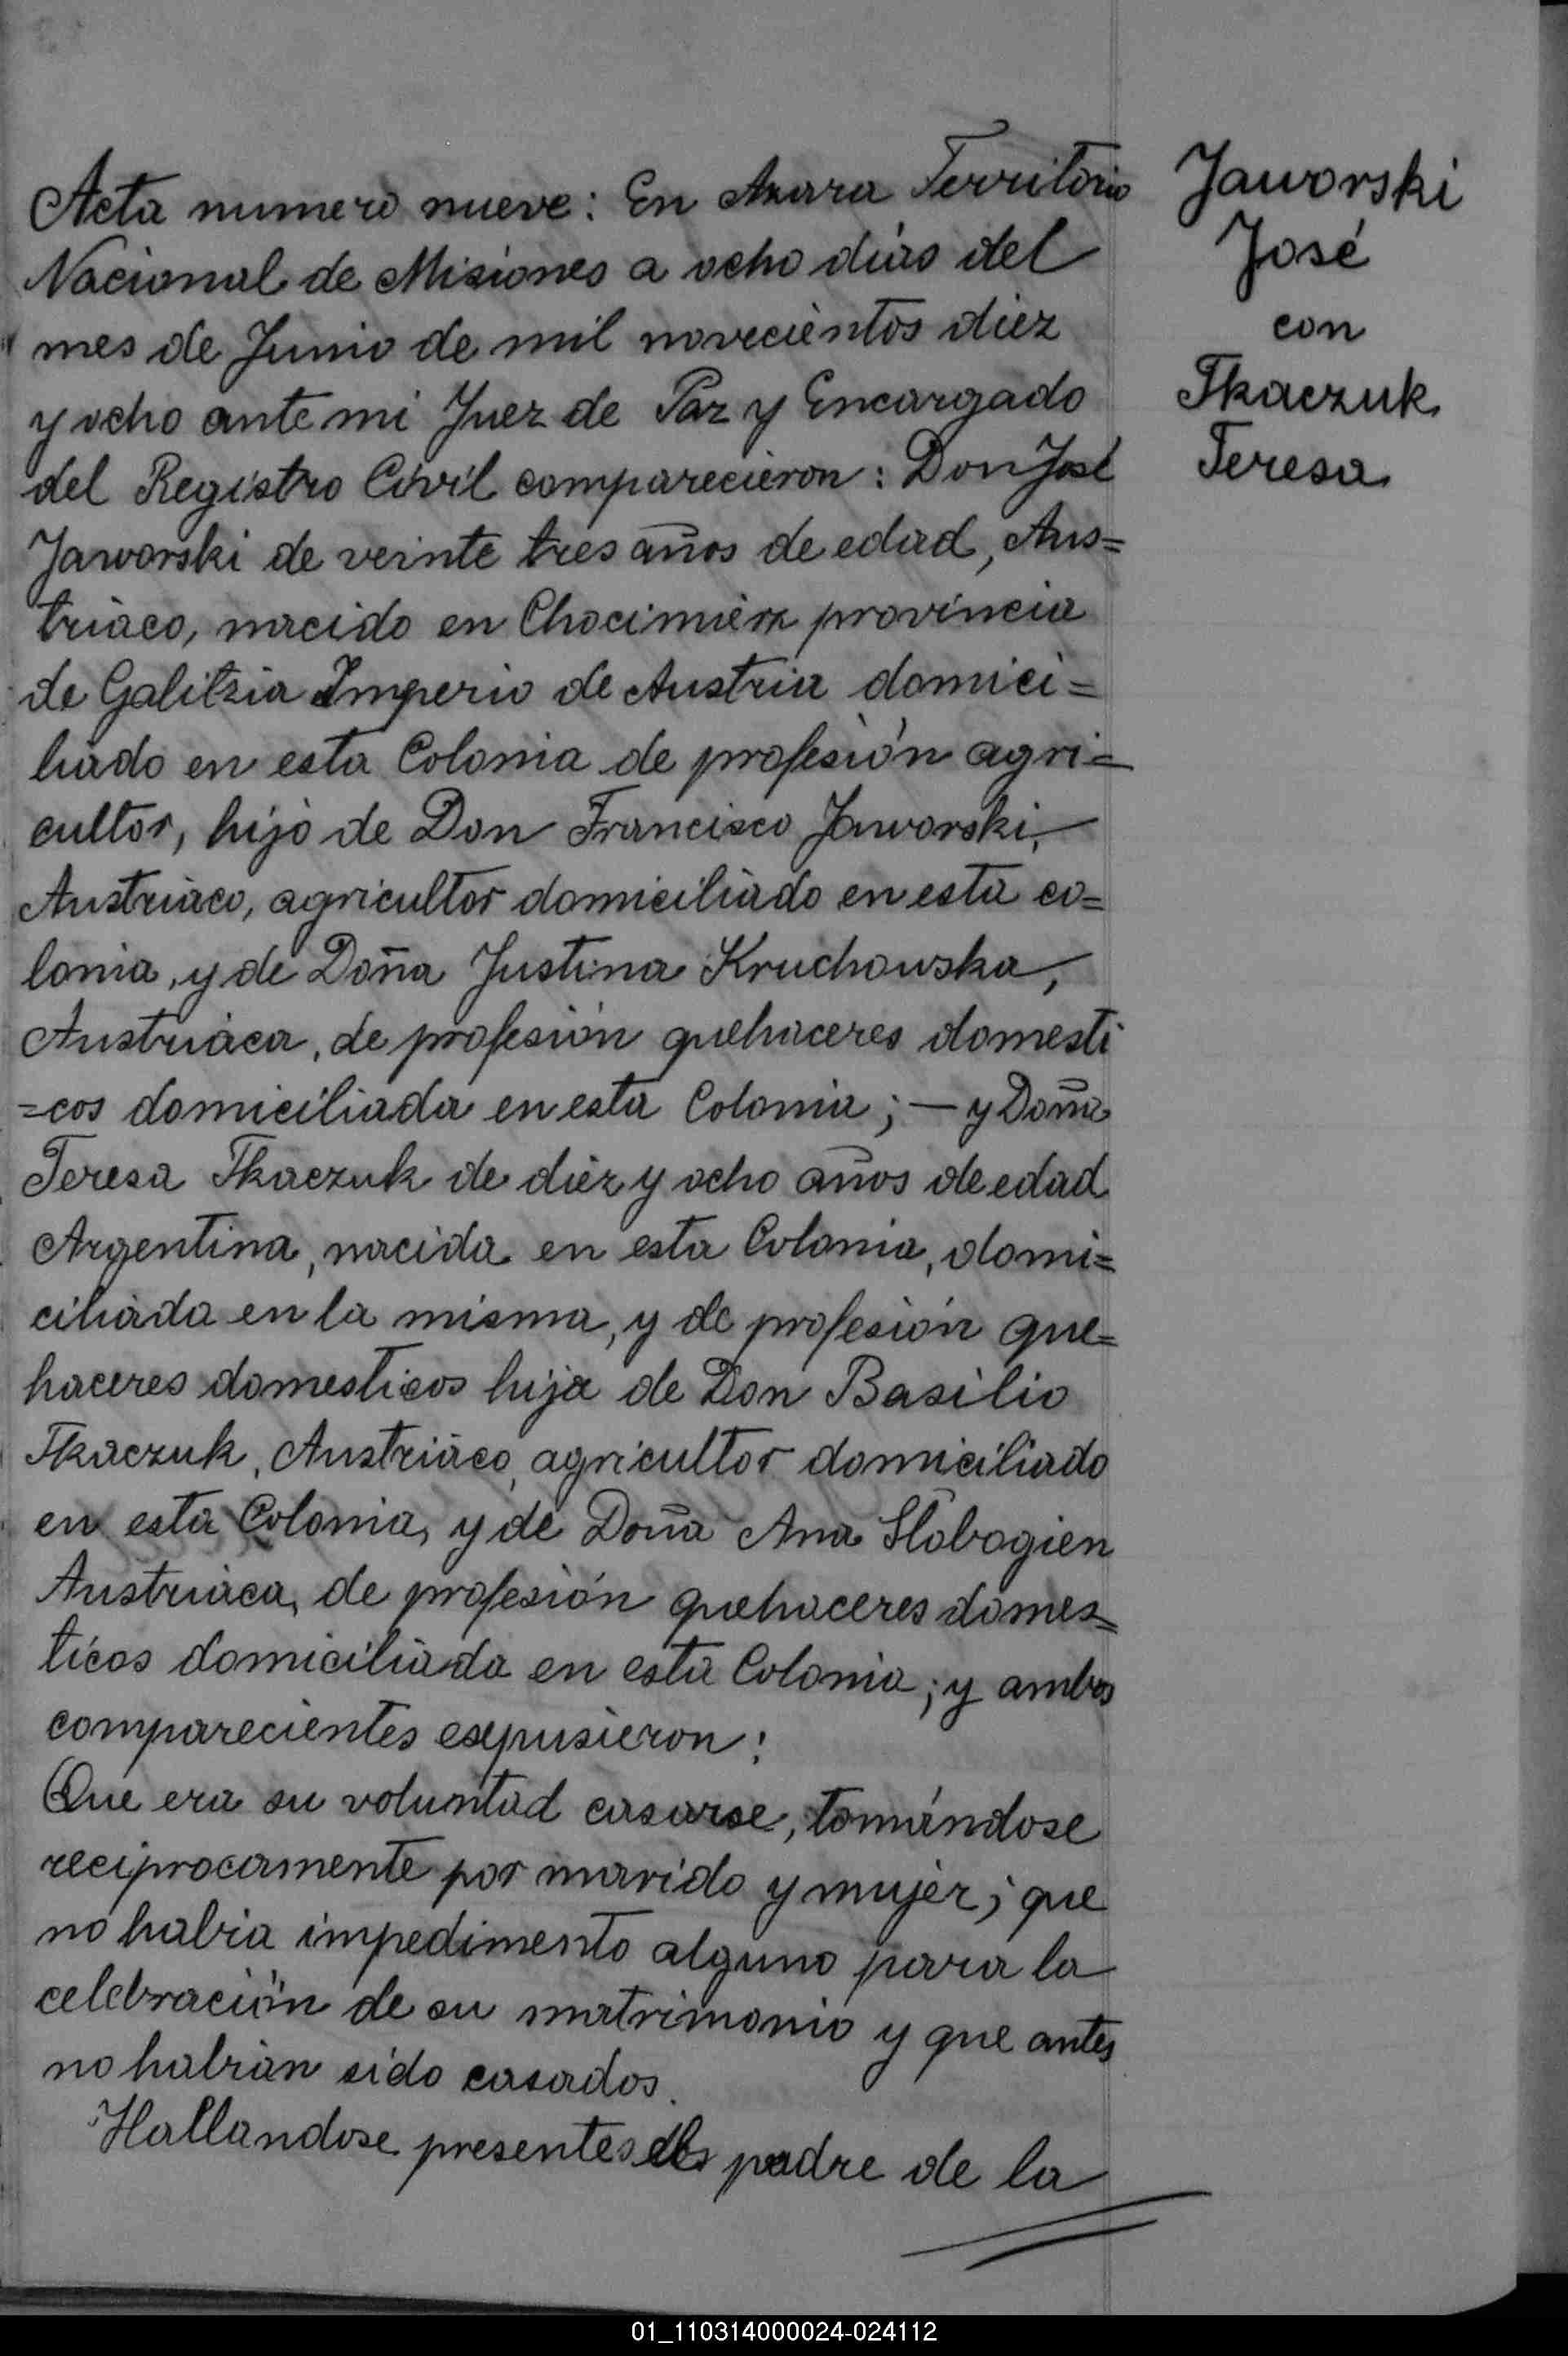 Acta numero nueve: En Azara Territorio
Nacional de Misiones a ocho dias del
mes de Junio de mil novecientos diez
y ocho ante mi Juez de Paz y Encargado
del Registro Civil comparecieron: Don José
Jaworski de veinte tres años de edad, Aus=
triaco, nacido en Chocimierz provincia
de Galitzia Imperio de Austria domici=
liado en esta Colonia de profesión agri=
cultor, hijo de Don Francisco Jaworski,
Austriaco, agricultor domiciliado en esta co=
lonia, y de Doña Justina Kruchowska,
Austriaca, de profesión quehaceres domesti
=cos domiciliada en esta Colonia; — y Doña
Teresa Tkaczuk de diez y ocho años de edad
Argentina, nacida en esta Colonia, domi=
ciliada en la misma, y de profesión que=
haceres domesticos hija de Don Basilio
Tkaczuk, Austriaco, agricultor domiciliado
en esta Colonia, y de Doña Ana Slobogien
Austriaca, de profesión quehaceres domes=
ticos domiciliada en esta Colonia; y ambos
comparecientes expusieron:
Que era su voluntad casarse, tomándose
reciprocamente por marido y mujer; que
no habia impedimento alguno para la
celebración de su matrimonio y que antes
no habian sido casados.
Hallandose presentes padre de la
Jaworski
José
con
Tkaczuk
Teresa
01_110314000024-024112